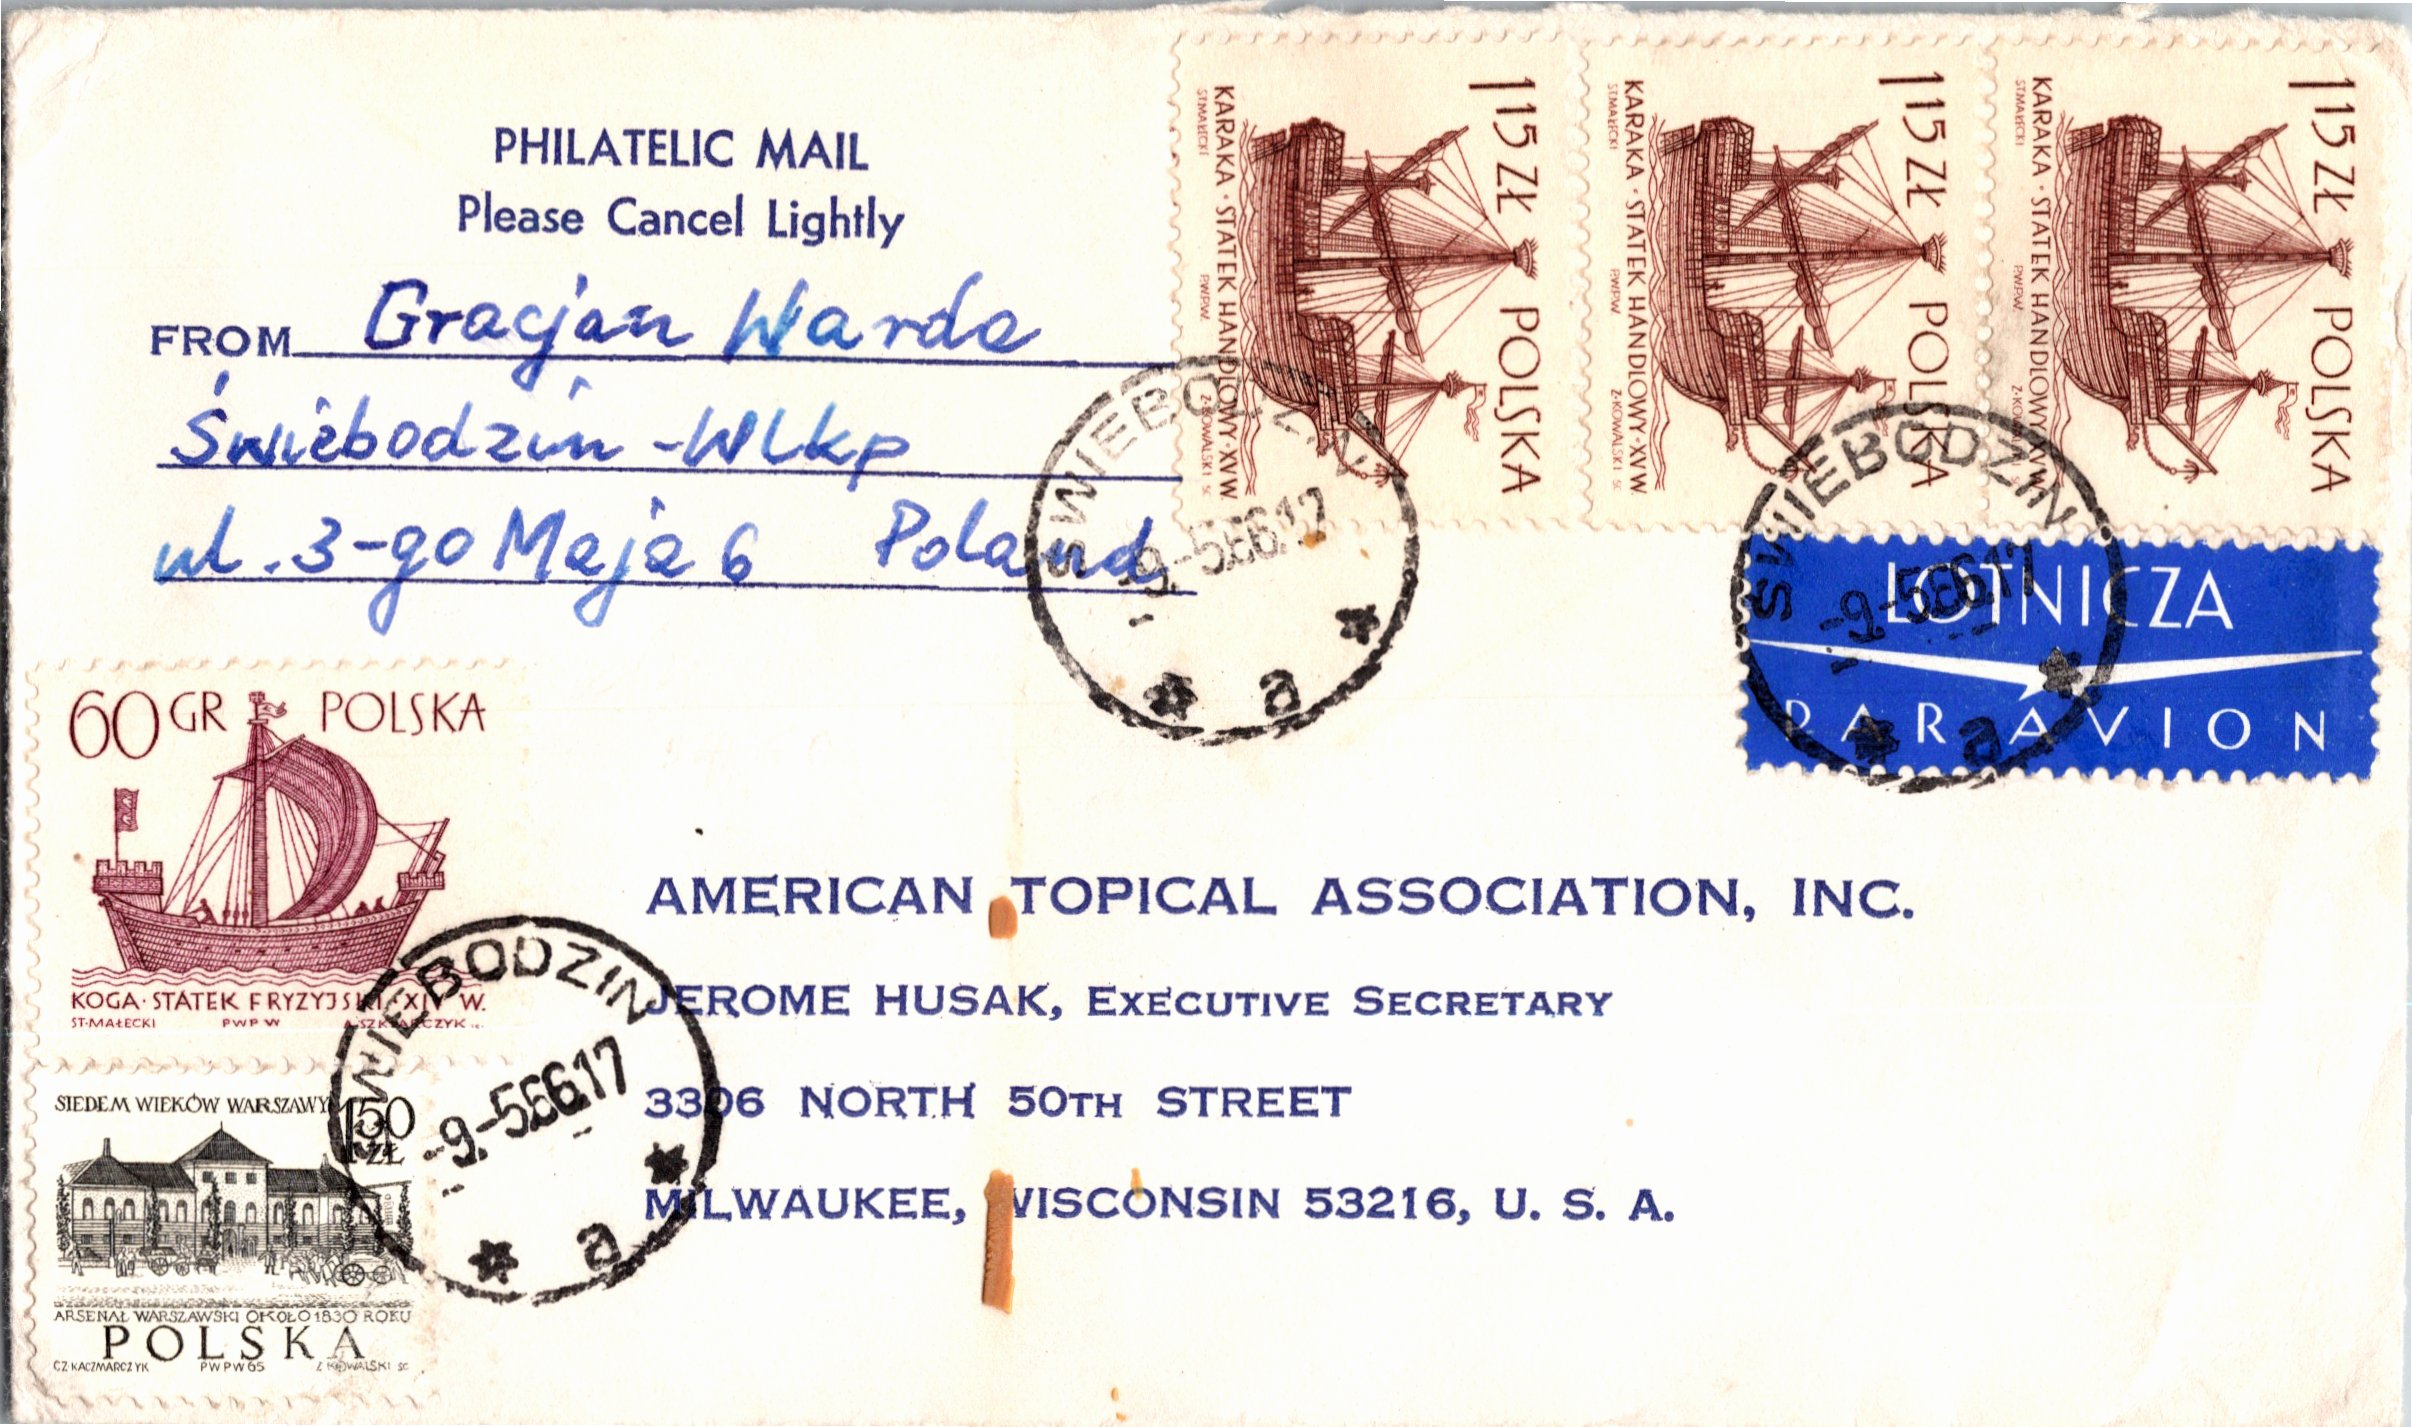 PHILATELIC MAIL
Please Cancel Lightly
FROM Gracjan Warda
Świebodzin - Wlkp
ul. 3-go Maja 6 Poland
1 15 ZŁ POLSKA
KARAKA · STATEK HANDLOWY · XV W
ST.MAŁECKI PWPW. Z·KOWALSKI SC
1 15 ZŁ POLSKA
KARAKA · STATEK HANDLOWY · XV W
ST.MAŁECKI PWPW Z·KOWALSKI SC
1 15 ZŁ POLSKA
KARAKA · STATEK HANDLOWY · XV W
ST.MAŁECKI PWPW
ŚWIEBODZIN
-9.-5.66.17
a
ŚWIEBODZIN
-9.-5.66.17
a
LOTNICZA
PAR AVION
60 GR POLSKA
KOGA · STATEK FRYZYJSKI · XIV W.
ST·MAŁECKI PWPW
AMERICAN TOPICAL ASSOCIATION, INC.
JEROME HUSAK, EXECUTIVE SECRETARY
3306 NORTH 50TH STREET
MILWAUKEE, WISCONSIN 53216, U. S. A.
ŚWIEBODZIN
-9.-5.66.17
a
SIEDEM WIEKÓW WARSZAWY 1 50
ZŁ
ARSENAŁ WARSZAWSKI OKOŁO 1830 ROKU
POLSKA
CZ KACZMARCZYK PWPW 65 Z KOWALSKI SC